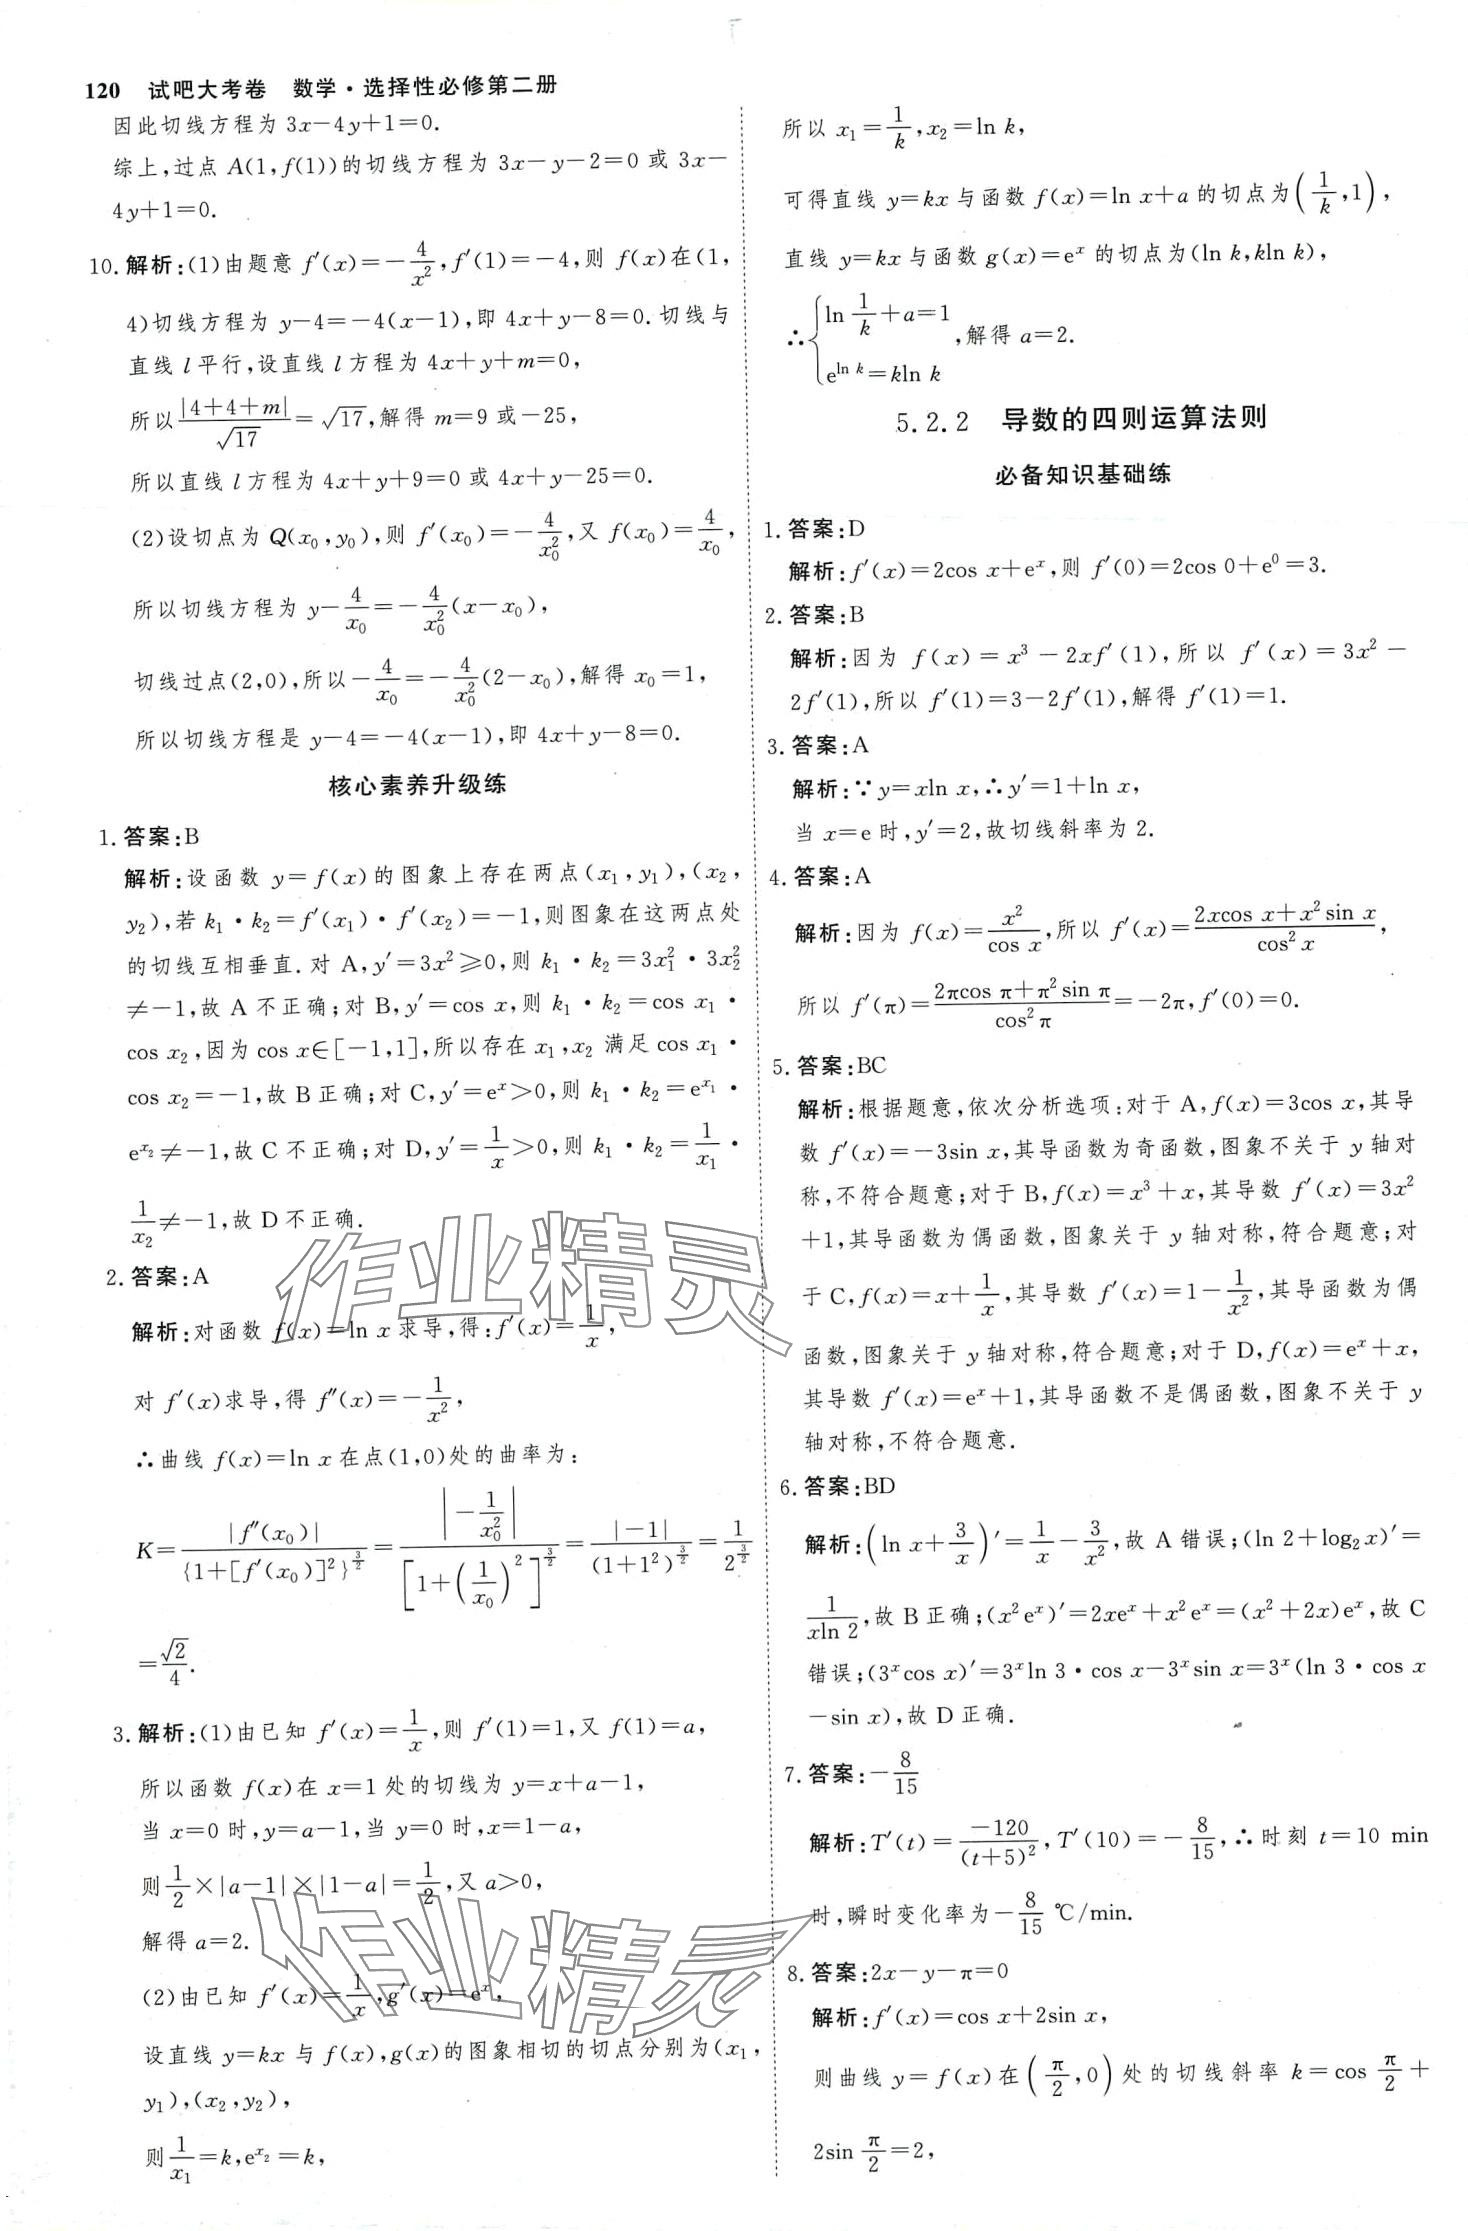 120 试吧大考卷 数学·选择性必修第二册
因此切线方程为 3x-4y+1=0.
综上,过点 A(1,f(1))的切线方程为 3x-y-2=0 或 3x-
4y+1=0.
10. 解析:(1)由题意 f′(x)=-4/x²,f′(1)=-4,则 f(x)在(1,
4)切线方程为 y-4=-4(x-1),即 4x+y-8=0.切线与
直线 l 平行,设直线 l 方程为 4x+y+m=0,
所以|4+4+m|/√17=√17,解得 m=9 或-25,
所以直线 l 方程为 4x+y+9=0 或 4x+y-25=0.
(2)设切点为 Q(x₀,y₀),则 f′(x₀)=-4/x₀²,又 f(x₀)=4/x₀,
所以切线方程为 y-4/x₀=-4/x₀²(x-x₀),
切线过点(2,0),所以-4/x₀=-4/x₀²(2-x₀),解得 x₀=1,
所以切线方程是 y-4=-4(x-1),即 4x+y-8=0.
核心素养升级练
1. 答案:B
解析:设函数 y=f(x)的图象上存在两点(x₁,y₁),(x₂,
y₂),若 k₁·k₂=f′(x₁)·f′(x₂)=-1,则图象在这两点处
的切线互相垂直.对 A,y′=3x²≥0,则 k₁·k₂=3x₁²·3x₂²
≠-1,故 A 不正确;对 B,y′=cos x,则 k₁·k₂=cos x₁·
cos x₂,因为 cos x∈[-1,1],所以存在 x₁,x₂ 满足 cos x₁·
cos x₂=-1,故 B 正确;对 C,y′=eˣ>0,则 k₁·k₂=e^(x₁)·
e^(x₂)≠-1,故 C 不正确;对 D,y′=1/x>0,则 k₁·k₂=1/x₁·
1/x₂≠-1,故 D 不正确.
2. 答案:A
解析:对函数 f(x)=ln x 求导,得:f′(x)=1/x,
对 f′(x)求导,得 f″(x)=-1/x²,
∴曲线 f(x)=ln x 在点(1,0)处的曲率为:
K=|f″(x₀)|/{1+[f′(x₀)]²}^(3/2)=|-1/x₀²|/[1+(1/x₀)²]^(3/2)=|-1|/(1+1²)^(3/2)=1/2^(3/2)
=√2/4.
3. 解析:(1)由已知 f′(x)=1/x,则 f′(1)=1,又 f(1)=a,
所以函数 f(x)在 x=1 处的切线为 y=x+a-1,
当 x=0 时,y=a-1,当 y=0 时,x=1-a,
则1/2×|a-1|×|1-a|=1/2,又 a>0,
解得 a=2.
(2)由已知 f′(x)=1/x,g′(x)=eˣ,
设直线 y=kx 与 f(x),g(x)的图象相切的切点分别为(x₁,
y₁),(x₂,y₂),
则1/x₁=k,e^(x₂)=k,
所以 x₁=1/k,x₂=ln k,
可得直线 y=kx 与函数 f(x)=ln x+a 的切点为(1/k,1),
直线 y=kx 与函数 g(x)=eˣ 的切点为(ln k,kln k),
∴{ln 1/k+a=1
e^(ln k)=kln k,解得 a=2.
5.2.2 导数的四则运算法则
必备知识基础练
1. 答案:D
解析:f′(x)=2cos x+eˣ,则 f′(0)=2cos 0+e⁰=3.
2. 答案:B
解析:因为 f(x)=x³-2xf′(1),所以 f′(x)=3x²-
2f′(1),所以 f′(1)=3-2f′(1),解得 f′(1)=1.
3. 答案:A
解析:∵y=xln x,∴y′=1+ln x,
当 x=e 时,y′=2,故切线斜率为 2.
4. 答案:A
解析:因为 f(x)=x²/cos x,所以 f′(x)=(2xcos x+x²sin x)/cos²x,
所以 f′(π)=(2πcos π+π²sin π)/cos²π=-2π,f′(0)=0.
5. 答案:BC
解析:根据题意,依次分析选项:对于 A,f(x)=3cos x,其导
数 f′(x)=-3sin x,其导函数为奇函数,图象不关于 y 轴对
称,不符合题意;对于 B,f(x)=x³+x,其导数 f′(x)=3x²
+1,其导函数为偶函数,图象关于 y 轴对称,符合题意;对
于 C,f(x)=x+1/x,其导数 f′(x)=1-1/x²,其导函数为偶
函数,图象关于 y 轴对称,符合题意;对于 D,f(x)=eˣ+x,
其导数 f′(x)=eˣ+1,其导函数不是偶函数,图象不关于 y
轴对称,不符合题意.
6. 答案:BD
解析:(ln x+3/x)′=1/x-3/x²,故 A 错误;(ln 2+log₂x)′=
1/(xln 2),故 B 正确;(x²eˣ)′=2xeˣ+x²eˣ=(x²+2x)eˣ,故 C
错误;(3ˣcos x)′=3ˣln 3·cos x-3ˣsin x=3ˣ(ln 3·cos x
-sin x),故 D 正确.
7. 答案:-8/15
解析:T′(t)=-120/(t+5)²,T′(10)=-8/15,∴时刻 t=10 min
时,瞬时变化率为-8/15 ℃/min.
8. 答案:2x-y-π=0
解析:f′(x)=cos x+2sin x,
则曲线 y=f(x)在(π/2,0)处的切线斜率 k=cos π/2+
2sin π/2=2,
作业精灵
作业精灵